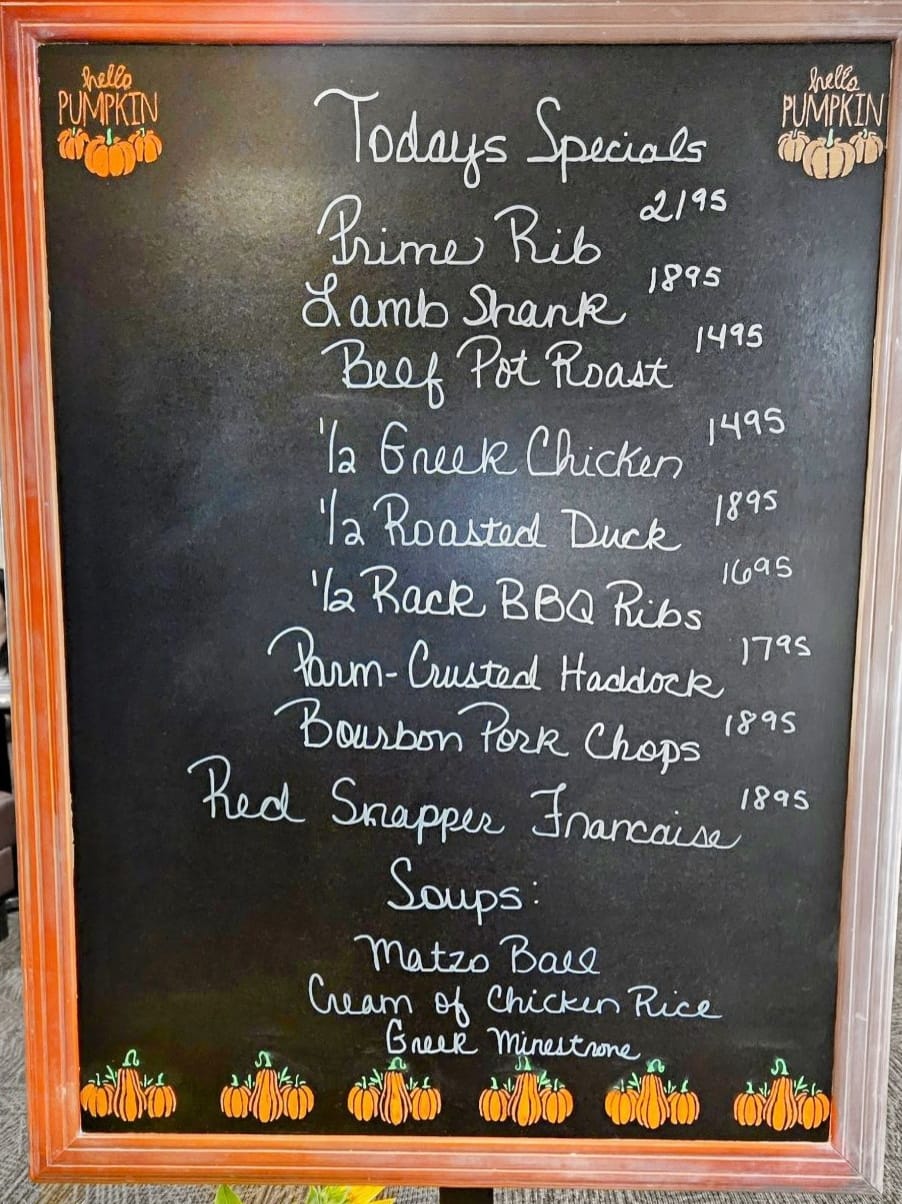 hello
PUMPKIN
hello
PUMPKIN
Todays Specials
Prime Rib 2195
Lamb Shank 1895
Beef Pot Roast 1495
1/2 Greek Chicken 1495
1/2 Roasted Duck 1895
1/2 Rack BBQ Ribs 1695
Parm-Crusted Haddock 1795
Bourbon Pork Chops 1895
Red Snapper Francaise 1895
Soups:
Matzo Ball
Cream of Chicken Rice
Greek Minestrone